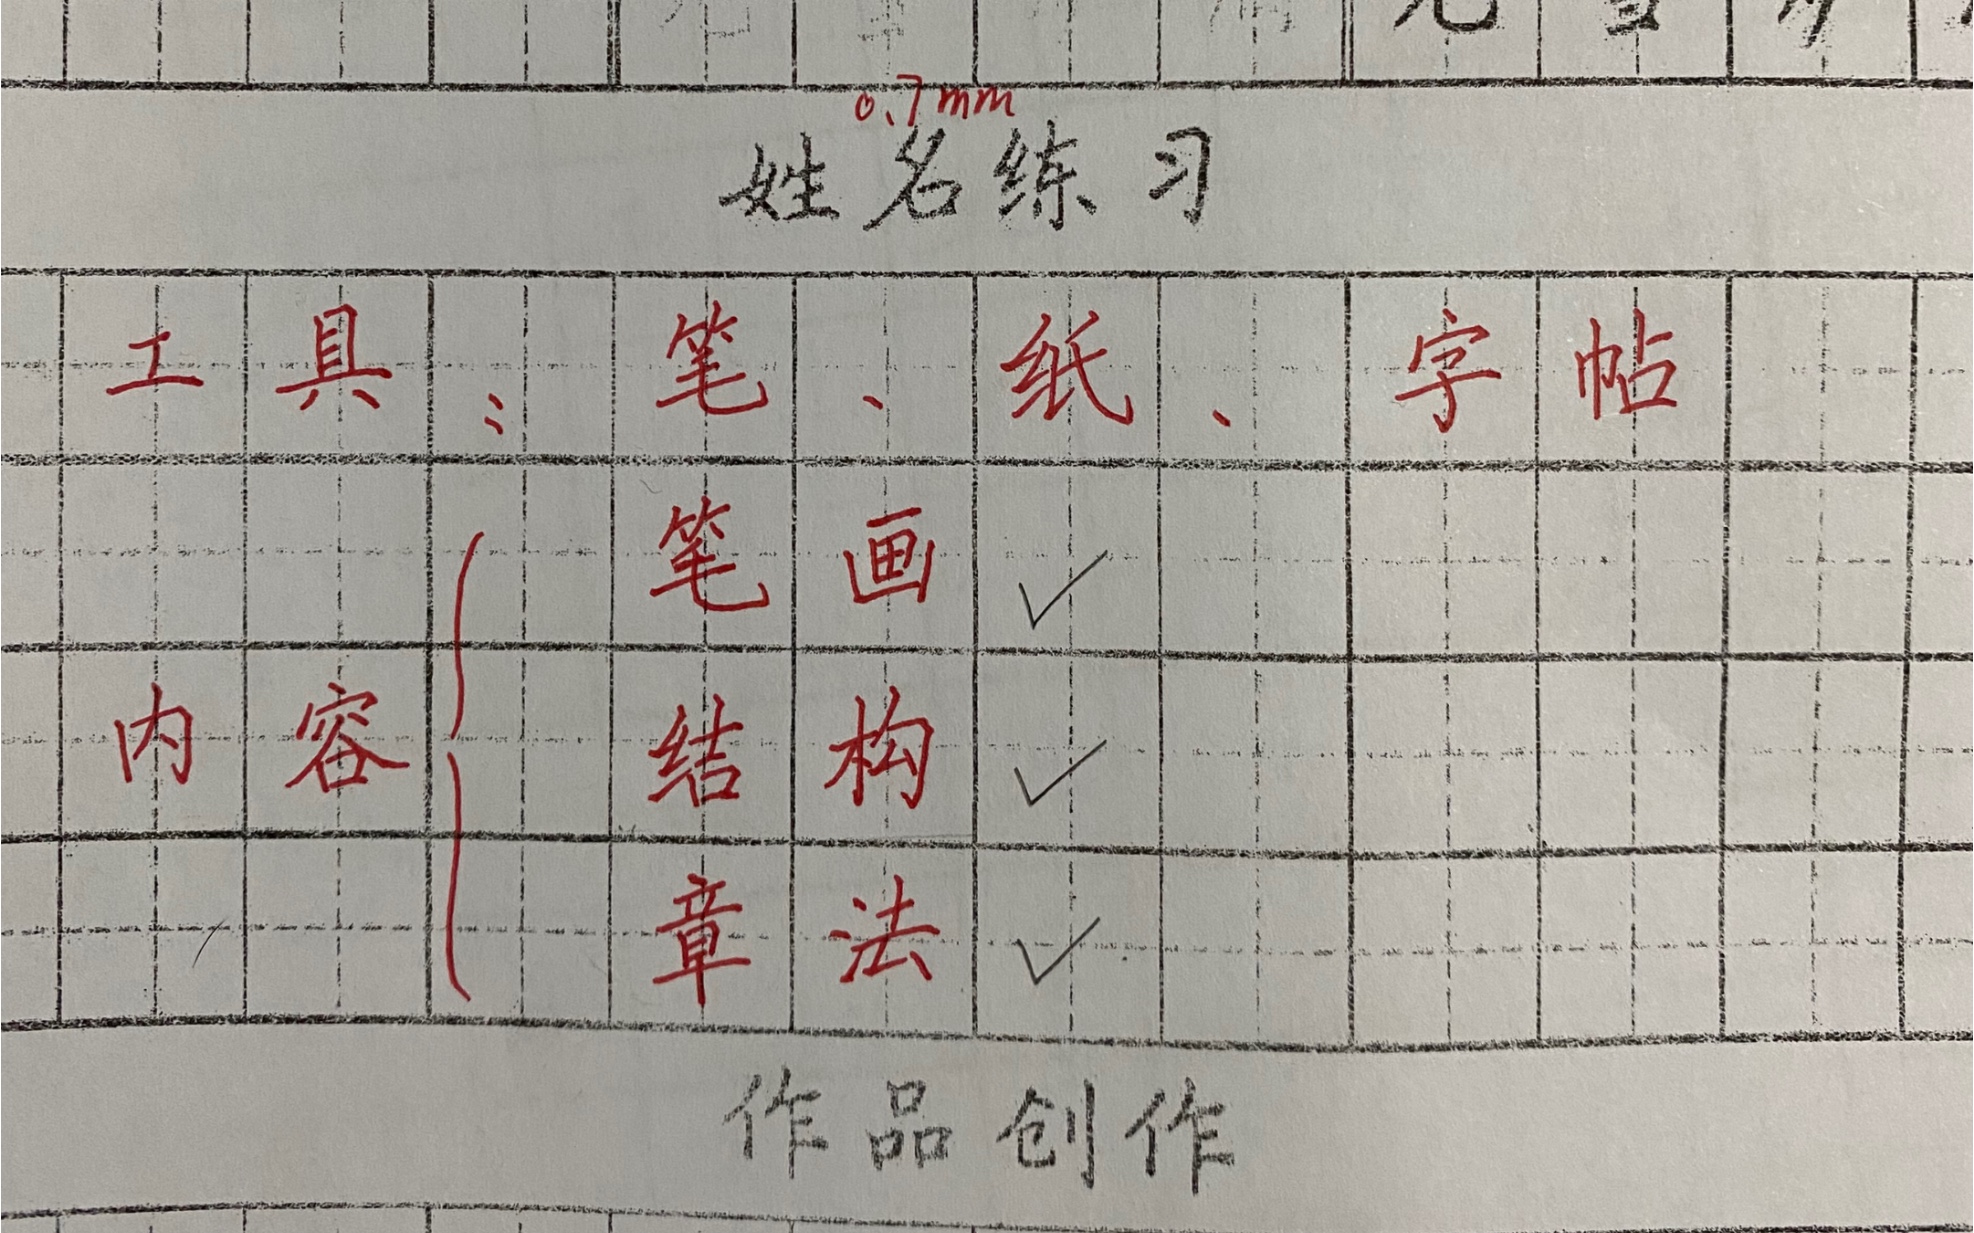 0.7mm
姓名练习
工具：笔、纸、字帖
笔画✓
内容 结构✓
章法✓
作品创作